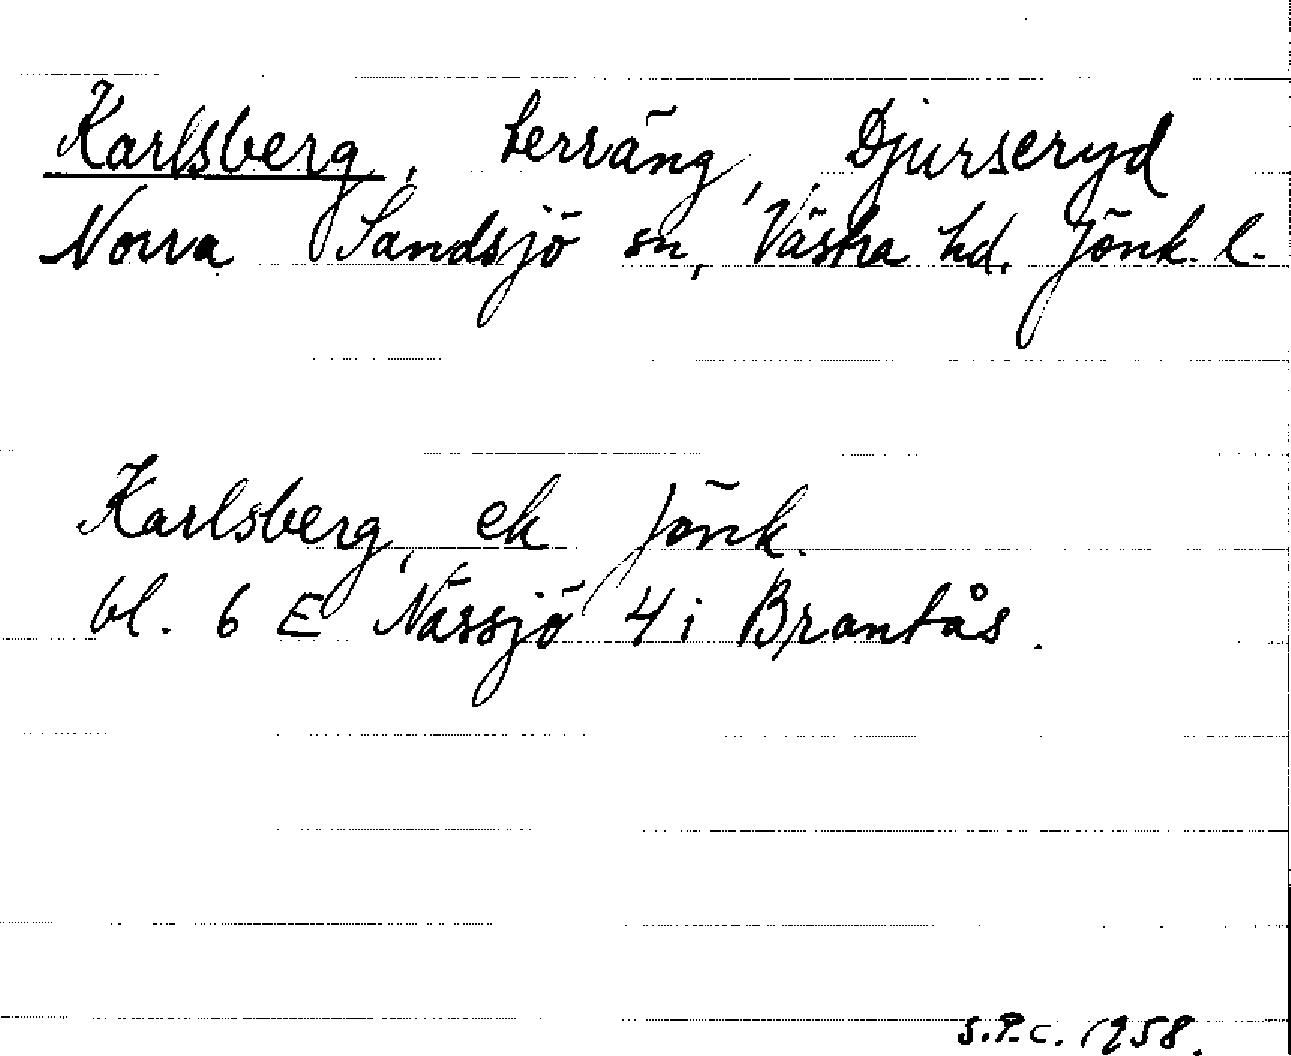 Karlsberg, terräng, Djurseryd
Norra Sandsjö sn, Västra hd. Jönk. l.
Karlsberg, ek Jönk.
bl. 6 E Nässjö 4 i Brantås.
S.P.C. 1958.